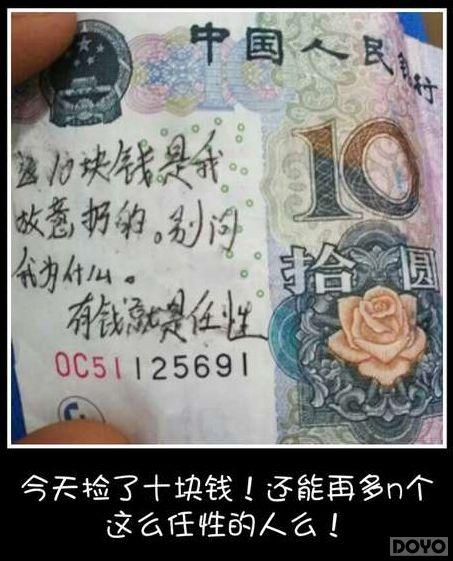 中国人民银行
10
这10块钱是我
故意扔的。别问
我为什么。
有钱就是任性
拾圆
OC51125691
今天捡了十块钱！还能再多n个
这么任性的人么！
DOYO